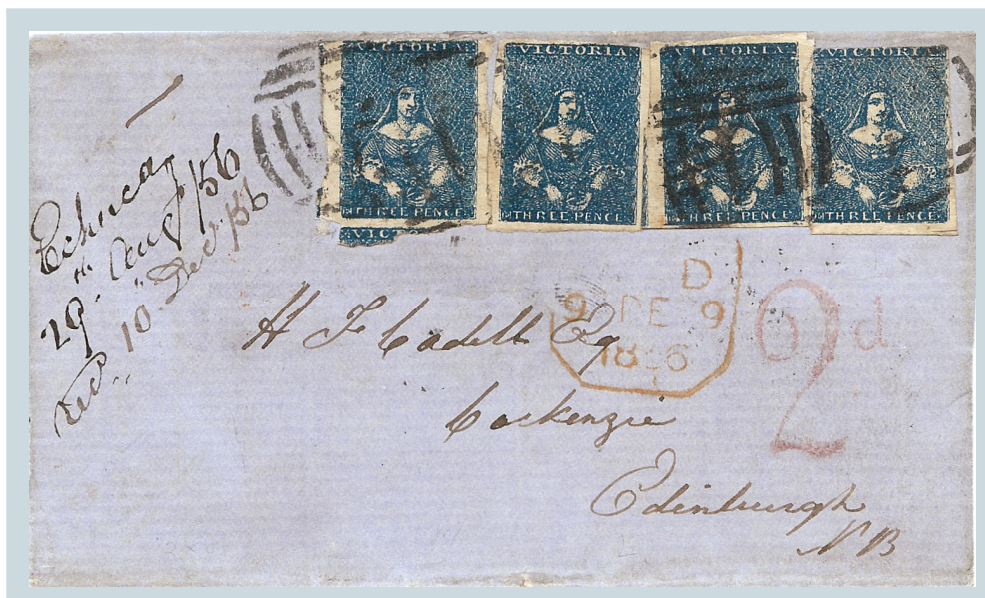 VICTORIA
THREE PENCE
VICTORIA
THREE PENCE
VICTORIA
THREE PENCE
VICTORIA
THREE PENCE
VICT
Echuca
29th Aug/56
10 Dec/56
D
9 DE 9
1856
2 d
H F Cadell Esq
Cockenzie
Edinburgh
N B